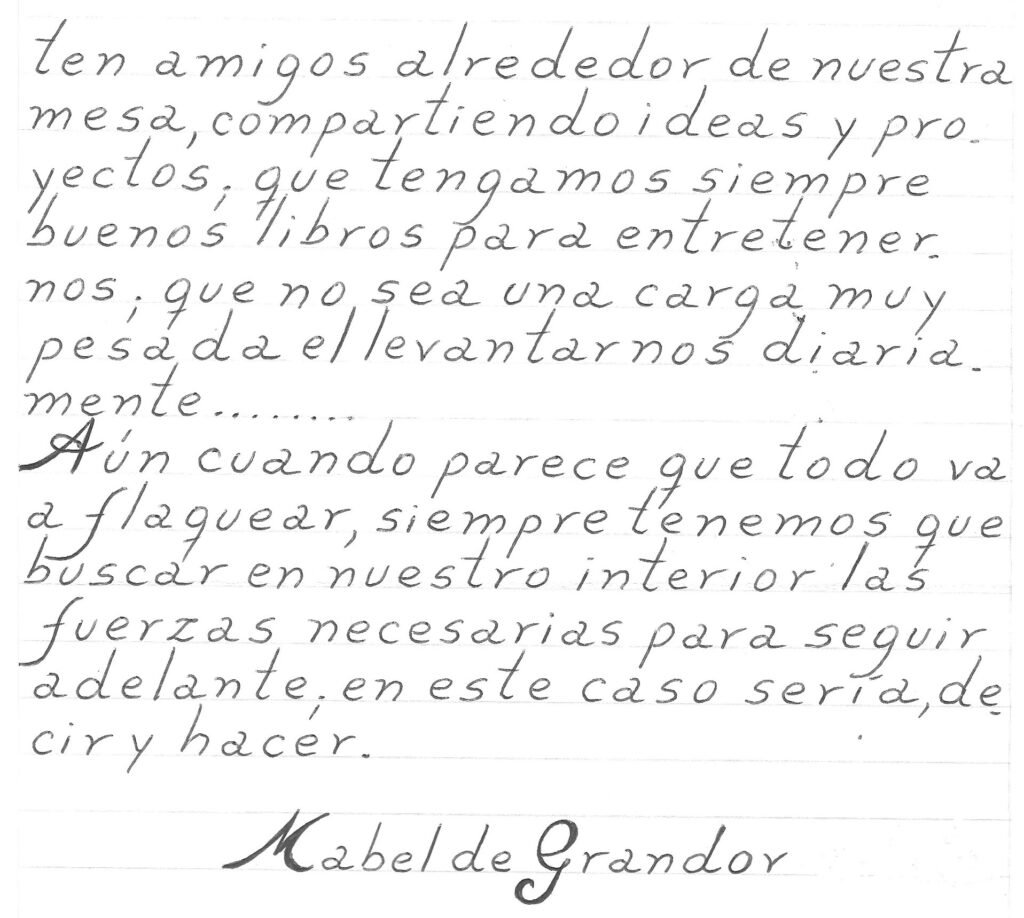 ten amigos alrededor de nuestra
mesa, compartiendo ideas y pro-
yectos; que tengamos siempre
buenos libros para entretener-
nos; que no sea una carga muy
pesada el levantarnos diaria-
mente.........
Aún cuando parece que todo va
a flaquear, siempre tenemos que
buscar en nuestro interior las
fuerzas necesarias para seguir
adelante; en este caso sería, de
cir y hacer.
Mabel de Grandor